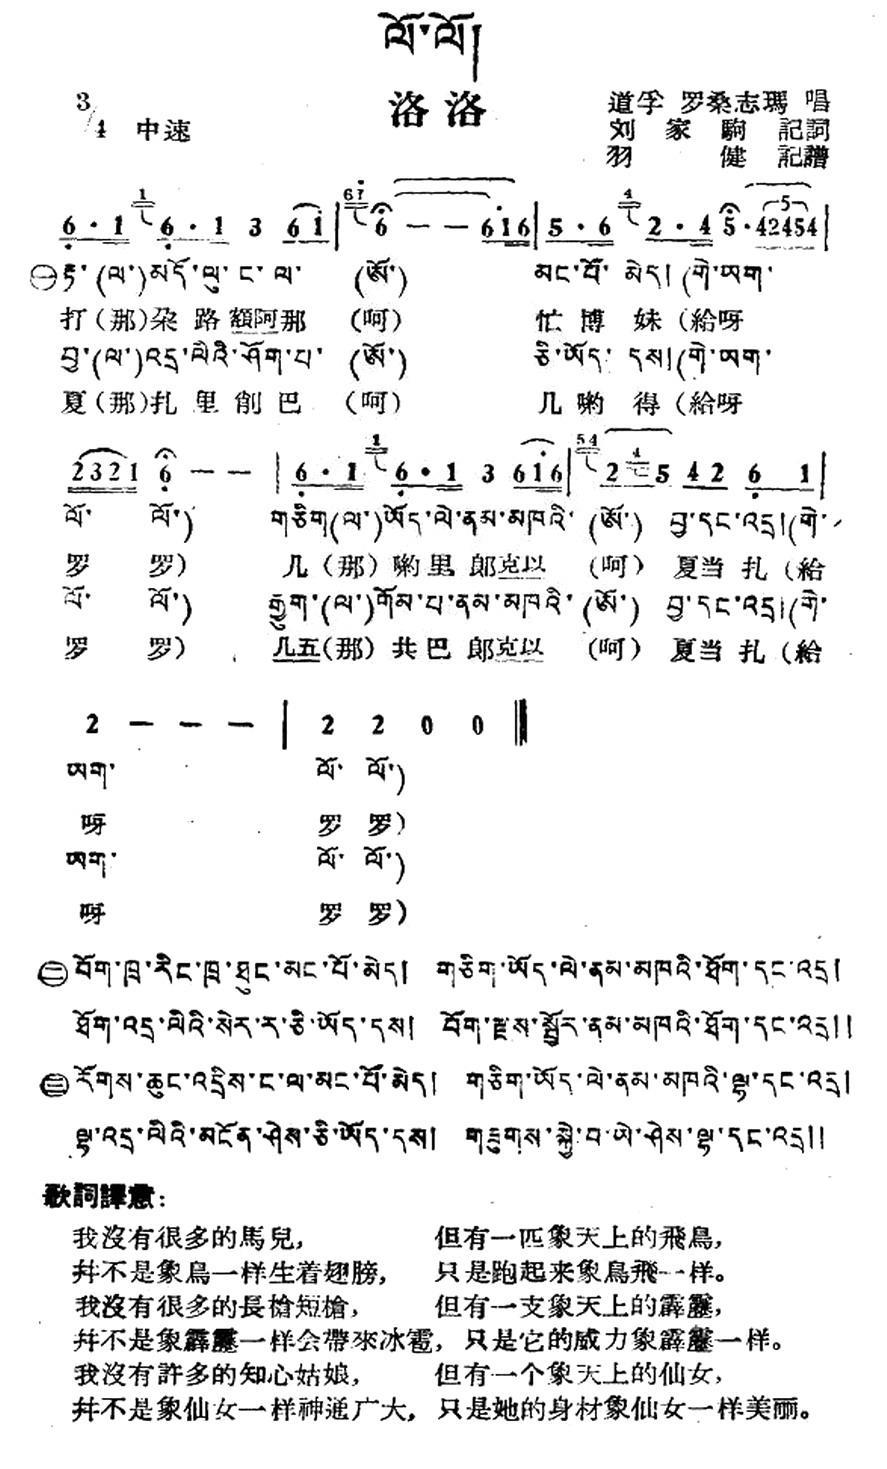 ལོ་ལོ།
洛洛
3/4 中速
道孚 罗桑志瑪 唱
刘家駒 記詞
羽健 記譜
6·1 6·1 3 61 | 6 — — 616 | 5·6 2·4 5·42454 |
㊀ རྟ་(ལ་)མདོ་ལུ་ང་ལ་ (ཨོ་) མང་པོ་མེད། (གེ་ཡག་
打(那)朶路額阿那 (呵) 忙博妹(給呀
བྱ་(ལ་)འདྲ་ལིའི་ཤོག་པ་ (ཨོ་) ཅི་ཡོད་དས། (གེ་ཡག་
夏(那)扎里削巴 (呵) 几喲得(給呀
2321 6 — — | 6·1 6·1 3 616 | 2 5 42 6 1 |
ལོ་ ལོ་) གཅིག་(ལ་)ཡོད་ལེ་ནམ་མཁའི་ (ཨོ་) བྱ་དང་འདྲ། (གེ་
罗 罗) 几(那)喲里郞克以 (呵) 夏当扎(給
ལོ་ ལོ་) རྒྱུག་(ལ་)གོམ་པ་ནམ་མཁའི་ (ཨོ་) བྱ་དང་འདྲ། (གེ་
罗 罗) 几五(那)共巴郞克以 (呵) 夏当扎(給
2 — — — | 2 2 0 0 ‖
ཡག་ ལོ་ ལོ་)
呀 罗 罗)
ཡག་ ལོ་ ལོ་)
呀 罗 罗)
㊁ བོག་ཁྲ་རིང་ཁྲ་ཐུང་མང་པོ་མེད། གཅིག་ཡོད་ལེ་ནམ་མཁའི་ཐོག་དང་འདྲ།
ཐོག་འདྲ་ལིའི་སེར་ར་ཅི་ཡོད་དས། བོག་རྫས་སྦྱོར་ནམ་མཁའི་ཐོག་དང་འདྲ།།
㊂ རོགས་ཆུང་འདྲིས་ང་ལ་མང་པོ་མེད། གཅིག་ཡོད་ལེ་ནམ་མཁའི་ལྷ་དང་འདྲ།
ལྷ་འདྲ་ལིའི་མངོན་ཤེས་ཅི་ཡོད་དས། གཟུགས་སྐྱེ་བ་ཡེ་ཤེས་ལྷ་དང་འདྲ།།
歌詞譯意:
我沒有很多的馬兒, 但有一匹象天上的飛鳥,
幷不是象鳥一样生着翅膀, 只是跑起来象鳥飛一样。
我沒有很多的長槍短槍, 但有一支象天上的霹靂,
幷不是象霹靂一样会帶來冰雹, 只是它的威力象霹靂一样。
我沒有許多的知心姑娘, 但有一个象天上的仙女,
幷不是象仙女一样神通广大, 只是她的身材象仙女一样美丽。